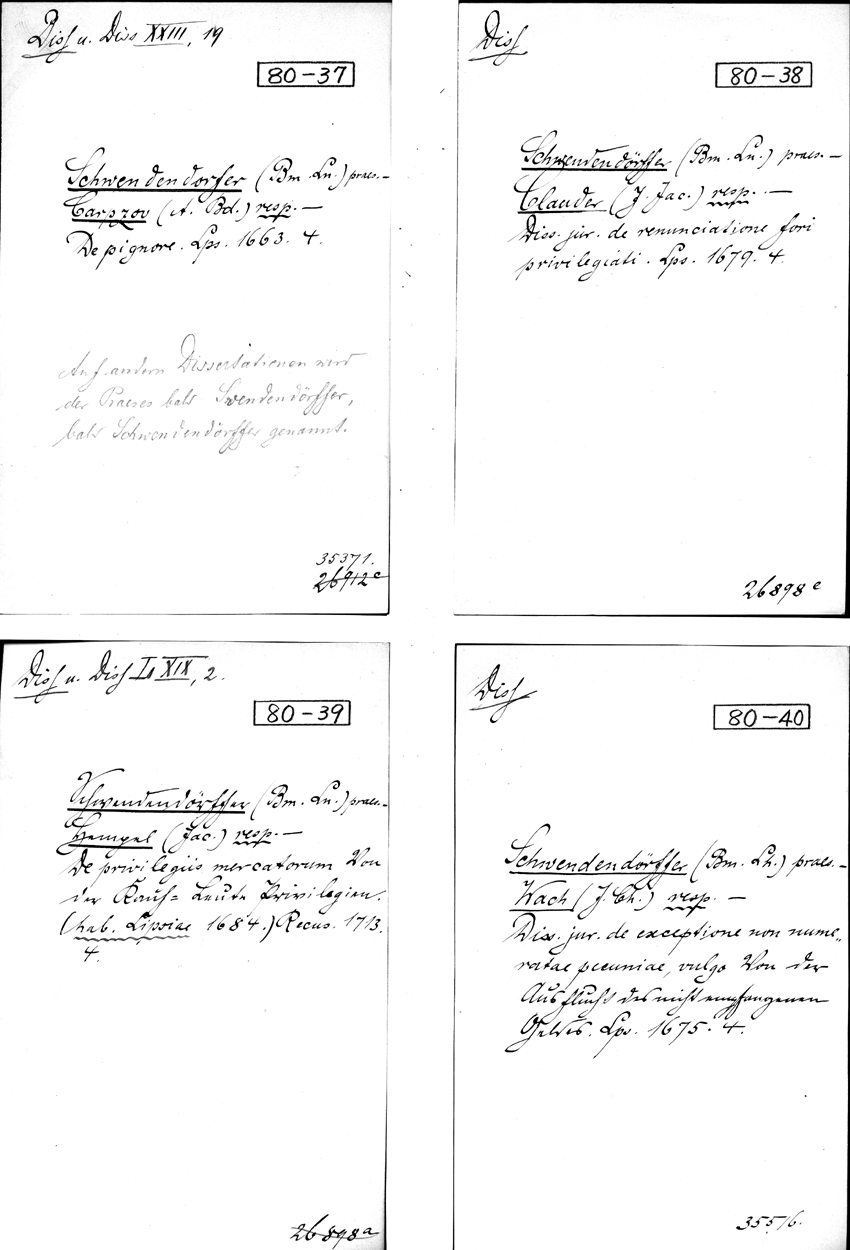 Diss u. Diss XXIII, 19
80-37
Schwendendorfer (Bm. Ln.) praes.—
Carpzov (A. Bd.) resp. —
De pignore. Lps. 1663. 4.
Auf andern Dissertationen wird
der Praeses bald Swendendörffer,
bald Schwendendörffer genannt.
35371.
26912e
Diss
80-38
Schwendendörffer (Bm. Ln.) praes. —
Clauder (J. Jac.) resp. —
Diss. jur. de renunciatione fori
privilegiati. Lps. 1679. 4.
26898e
Diss u. Diss XIX, 2.
80-39
Schwendendörffer (Bm. Ln.) praes.—
Hempel (Jac.) resp. —
De privilegiis mercatorum Von
der Kauf= Leute Privilegien.
(hab. Lipsiae 1684.) Recus. 1713.
4.
26898a
Diss
80-40
Schwendendörffer (Bm. Lh.) praes. —
Wach (J. Ch.) resp. —
Diss. jur. de exceptione non nume=
ratae pecuniae, vulgo Von der
Ausflucht des nicht empfangenen
Geldes. Lps. 1675. 4.
35516.